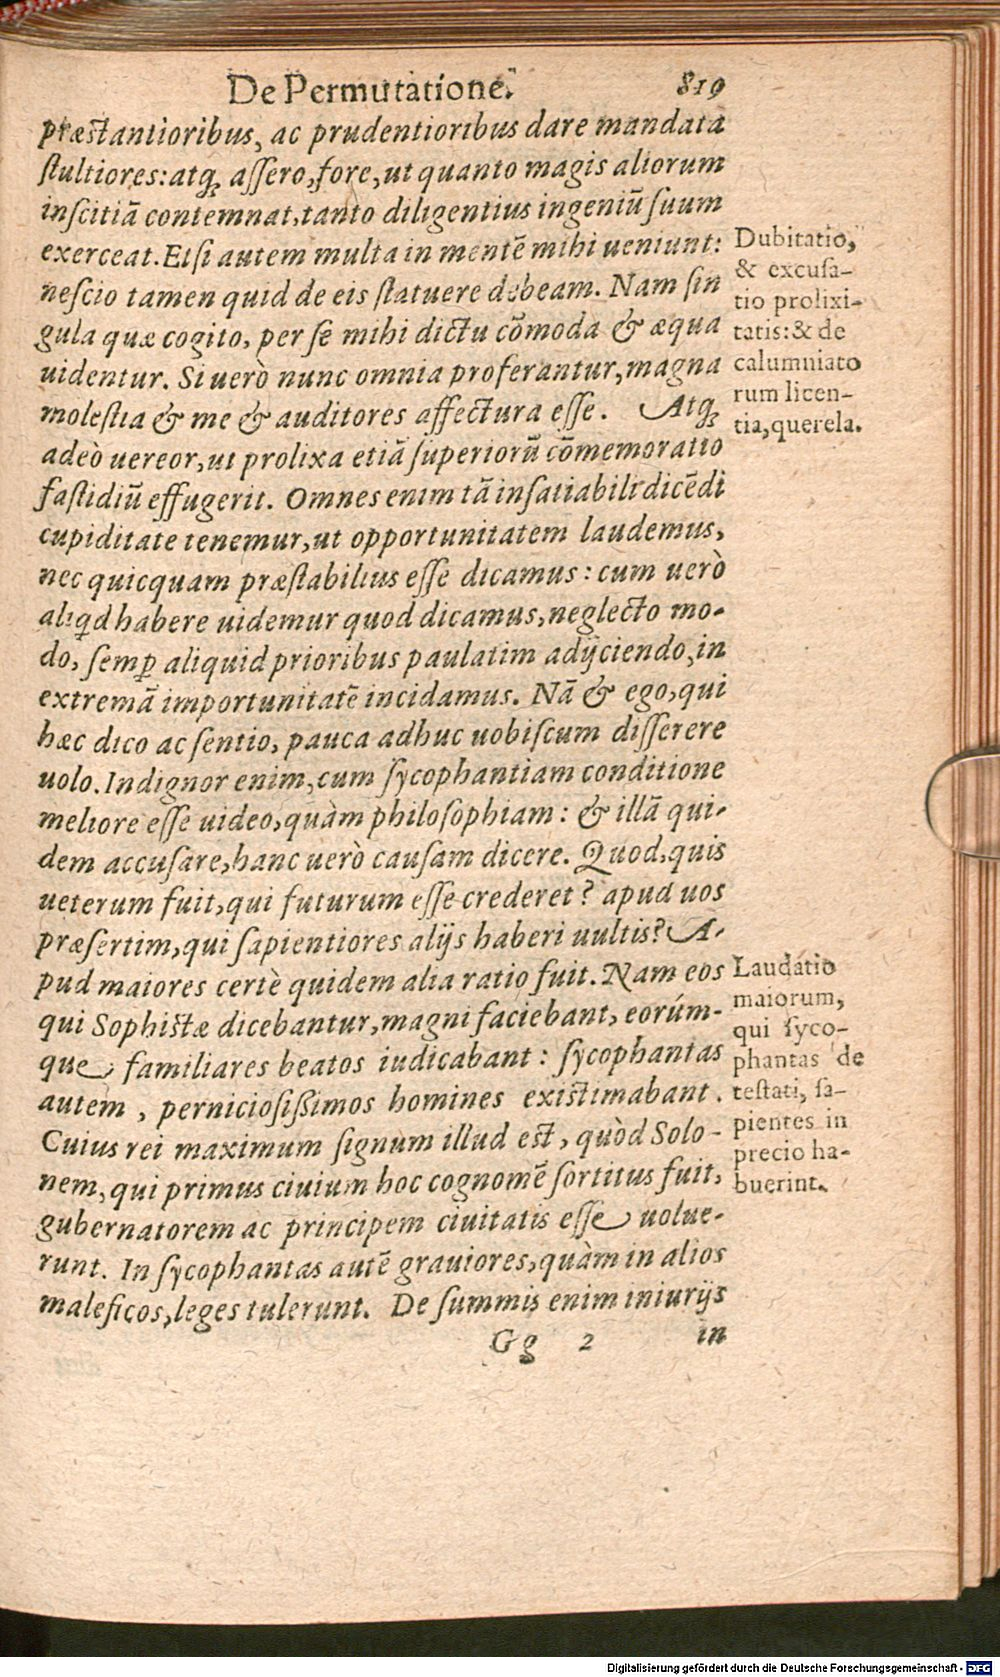 De Permutatione. 819
præstantioribus, ac prudentioribus dare mandata
stultiores: atq; assero, fore, ut quanto magis aliorum
inscitiā contemnat, tanto diligentius ingeniū suum
exerceat. Etsi autem multa in mentē mihi ueniunt:
nescio tamen quid de eis statuere debeam. Nam sin
gula quæ cogito, per se mihi dictu cōmoda & æqua
uidentur. Si uerò nunc omnia proferantur, magna
molestia & me & auditores affectura esse. Atq;
adeò uereor, ut prolixa etiā superiorū cōmemoratio
fastidiū effugerit. Omnes enim tā insatiabili dicēdi
cupiditate tenemur, ut opportunitatem laudemus,
nec quicquam præstabilius esse dicamus: cum uerò
aliqd habere uidemur quod dicamus, neglecto mo-
do, semp aliquid prioribus paulatim adijciendo, in
extremā importunitatē incidamus. Nā & ego, qui
hæc dico ac sentio, pauca adhuc uobiscum disserere
uolo. Indignor enim, cum sycophantiam conditione
meliore esse uideo, quàm philosophiam: & illā qui-
dem accusare, hanc uerò causam dicere. Quod, quis
ueterum fuit, qui futurum esse crederet? apud uos
præsertim, qui sapientiores alijs haberi uultis? A-
pud maiores certè quidem alia ratio fuit. Nam eos
qui Sophistæ dicebantur, magni faciebant, eorúm-
que familiares beatos iudicabant: sycophantas
autem, perniciosißimos homines existimabant.
Cuius rei maximum signum illud est, quòd Solo-
nem, qui primus ciuium hoc cognomē sortitus fuit,
gubernatorem ac principem ciuitatis esse uolue-
runt. In sycophantas autē grauiores, quàm in alios
maleficos, leges tulerunt. De summis enim iniurijs
Gg 2 in
Dubitatio,
& excusa-
tio prolixi-
tatis: & de
calumniato
rum licen-
tia, querela.
Laudatio
maiorum,
qui syco-
phantas de
testati, sa-
pientes in
precio ha-
buerint.
Digitalisierung gefördert durch die Deutsche Forschungsgemeinschaft - DFG